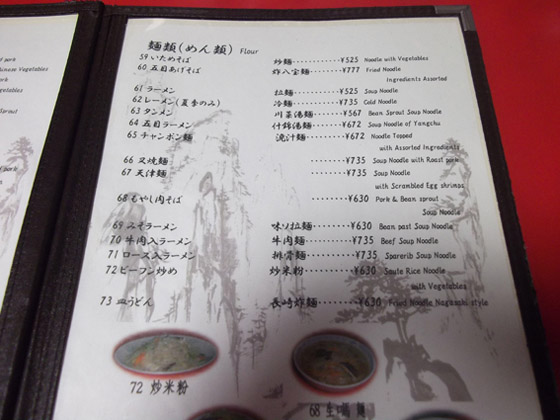 pork
Chinese Vegetables
pork
Sprout
麺類(めん類) Flour
59 いためそば 炒麺 ¥525 Noodle with Vegetables
60 五目あげそば 炸八宝麺 ¥777 Fried Noodle
Ingredients Assorted
61 ラーメン 拉麺 ¥525 Soup Noodle
62 レーメン(夏季のみ) 冷麺 ¥735 Cold Noodle
63 タンメン 川菜湯麺 ¥567 Bean Sprout Soup Noodle
64 五目ラーメン 什錦湯麺 ¥672 Soup Noodle of Yangchu
65 チャンポン麺 ¥672 Noodle Topped
with Assorted Ingredients
66 叉焼麺 ¥735 Soup Noodle with Roast pork
67 天津麺 ¥735 Soup Noodle
with Scrambled Egg shrimps
68 もやし肉そば ¥630 Pork & Bean sprout
Soup Noodle
69 みそラーメン 味り拉麺 ¥630 Bean past Soup Noodle
70 牛肉入ラーメン 牛肉麺 ¥735 Beef Soup Noodle
71 ロース入ラーメン 排骨麺 ¥735 Sparerib Soup Noodle
72 ビーフン炒め 炒米粉 ¥630 Saute Rice Noodle
with Vegetables
73 皿うどん 長崎炸麺 ¥630 Fried Noodle Nagasaki style
72 炒米粉
68 生 麺